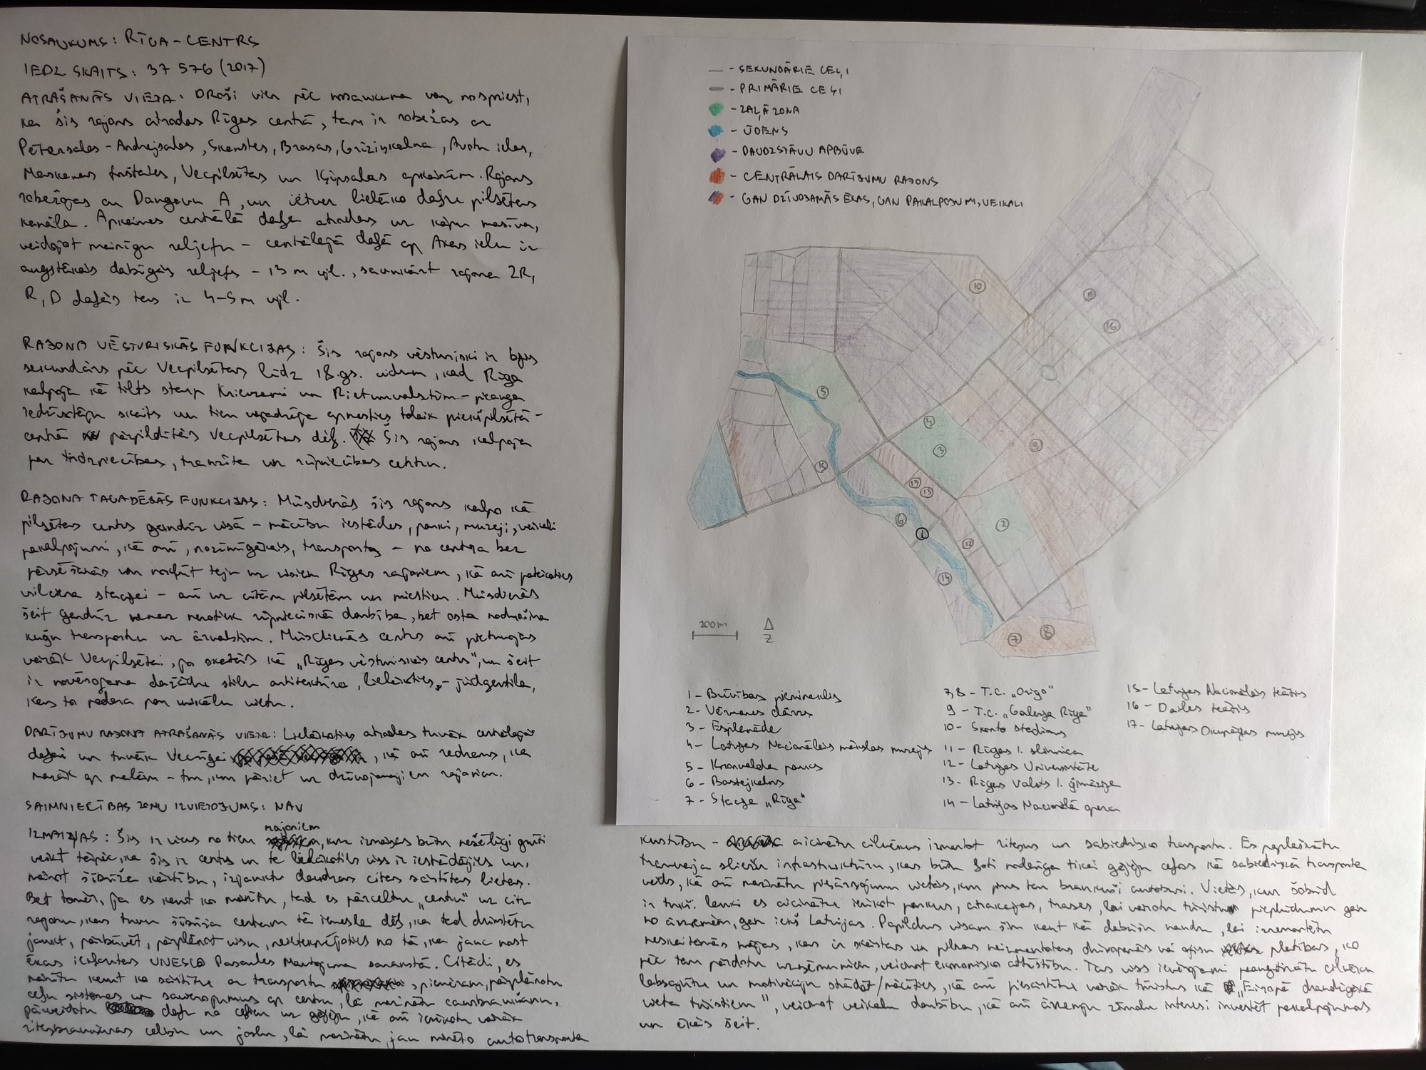 NOSAUKUMS: RĪGA-CENTRS
IEDZ SKAITS: 37 576 (2017)
ATRAŠANĀS VIETA: Droši vien pēc nosaukuma var nospriest,
ka šis rajons atrodas Rīgas centrā, tam ir robežas ar
Pētersalas-Andrejsalas, Skanstes, Brasas, Grīziņkalna, Avotu ielas,
Maskavas forštates, Vecpilsētas un Ķīpsalas apkaimēm. Rajons
robežojas ar Daugavu A, un ietver lielāko daļu pilsētas
kanāla. Apkaimes centrālā daļa atrodas uz kāpu masīva,
veidojot mainīgu reljefu - centrālajā daļā ap ielu ir
augstākais dabīgais reljefs - 13 m vjl., savukārt rajona ZR,
R, D daļās tas ir 4-5 m vjl.
RAJONA VĒSTURISKĀS FUNKCIJAS: Šis rajons vēsturiski ir bijis
sekundārs pēc Vecpilsētas līdz 18.gs. vidum, kad Rīga
kalpoja kā tilts starp Krieviju un Rietumvalstīm - pieauga
iedzīvotāju skaits un tiem vajadzēja apmesties tolaik piepilsētā -
centrā pārpildītās Vecpilsētas dēļ. Šis rajons kalpoja
par tirdzniecības, tranzīta un rūpniecības centru.
RAJONA TAGADĒJĀS FUNKCIJAS: Mūsdienās šis rajons kalpo kā
pilsētas centrs gandrīz visā - mācību iestādes, parki, muzeji, veikali
pakalpojumi, kā arī, nozīmīgākais, transports - no centra bez
pārsēšanās var nokļūt teju uz visiem Rīgas rajoniem, kā arī pateicoties
vilcienu stacijai - arī uz citām pilsētām un miestiem. Mūsdienās
šeit gandrīz vairs nenotiek rūpnieciskā darbība, bet osta nodrošina
kuģu transportu uz ārvalstīm. Mūsdienās centrs arī pietuvojas
vairāk Vecpilsētai, pa skatās kā "Rīgas vēsturiskais centrs", un šeit
ir novērojama dažādu stilu arhitektūra, lielākoties - jūgendstila,
kas to padara par unikālu vietu.
DARĪJUMU RAJONA ATRAŠANĀS VIETA: Lielākoties atrodas tuvāk centrālajai
daļai un tuvāk Vecrīgai, kā arī redzams, ka
vairāk ap malām - tur, kur pāriet uz dzīvojamajiem rajoniem.
SAIMNIECĪBAS ZONU IZVIETOJUMS: NAV
IZMAIŅAS: Šis ir viens no tiem rajoniem, kur izmaiņas būtu grūti
veikt tāpēc, ka šis ir centrs un te lielākoties viss ir iestādījies un,
mainot šībrīža kārtību, izjauktu daudzas citas saistītas lietas.
Bet tomēr, ja es kaut ko mainītu, tad es pārceltu "centru" uz citu
rajonu, kas tuvu šībrīža centram tā iemesla dēļ, ka tad drīkstētu
jaukt, pārbūvēt, pārplānot visu, neuztraucoties no tā, ka jauc nost
ēkas iekļautas UNESCO Pasaules Mantojuma sarakstā. Citādi, es
mainītu kaut ko saistītu ar transportu, piemēram, pārplānotu
ceļu sistēmas un savienojumus ap centru, lai mazinātu caurbraukšanu,
pārveidotu daļu no ceļiem uz gājēju, kā arī ieviestu vairāk
riteņbraukšanas celiņu un joslu, lai mazinātu jau minēto autotransporta
kustību - aicinātu cilvēkus izmantot riteņus un sabiedrisko transportu. Es paplašinātu
tramvaja sliežu infrastruktūru, kas būtu ļoti noderīga tikai gājēju ceļos kā sabiedriskā transporta
veids, kā arī mazinātu piesārņojumu vietās, kur pirms tam braukuši autobusi. Vietās, kur šobrīd
ir tukši lauki es aicinātu ieviest parkus, atrakcijas, trases, lai varētu tūristu pieplūdumu gan
no ārzemēm, gan iekš Latvijas. Papildus visam šim kaut kā dabūtu naudu, lai izremontētu
neskaitāmās mājas, kas ir skaistas un pilnas neizmantotas dzīvojamās vai ofisu platības, ko
pēc tam pārdotu uzņēmumiem, veicinot ekonomisko attīstību. Tas viss ievērojami paaugstinātu cilvēku
labsajūtu un motivāciju strādāt/mācīties, kā arī piesaistītu vairāk tūristus kā "Eiropā draudzīgākā
vieta tūristiem", veicinot veikalu darbību, kā arī ārvalstu zīmolu interesi investēt pakalpojumos
un ēkās šeit.
- SEKUNDĀRIE CEĻI
- PRIMĀRIE CEĻI
- ZAĻĀ ZONA
- ŪDENS
- DAUDZSTĀVU APBŪVE
- CENTRĀLAIS DARĪJUMU RAJONS
- GAN DZĪVOJAMĀS ĒKAS, GAN PAKALPOJUMI, VEIKALI
10
16
5
4
3
9
15
13
2
6
1
12
14
7
8
200m
Z
1 - Brīvības piemineklis
2 - Vērmanes dārzs
3 - Esplanāde
4 - Latvijas Nacionālais mākslas muzejs
5 - Kronvalda parks
6 - Bastejkalns
7 - Stacija "Rīga"
7,8 - T.C. "Origo"
9 - T.C. "Galerija Rīga"
10 - Skonto stadions
11 - Rīgas 1. slimnīca
12 - Latvijas Universitāte
13 - Rīgas Valsts 1. ģimnāzija
14 - Latvijas Nacionālā opera
15 - Latvijas Nacionālais teātris
16 - Dailes teātris
17 - Latvijas Okupācijas muzejs